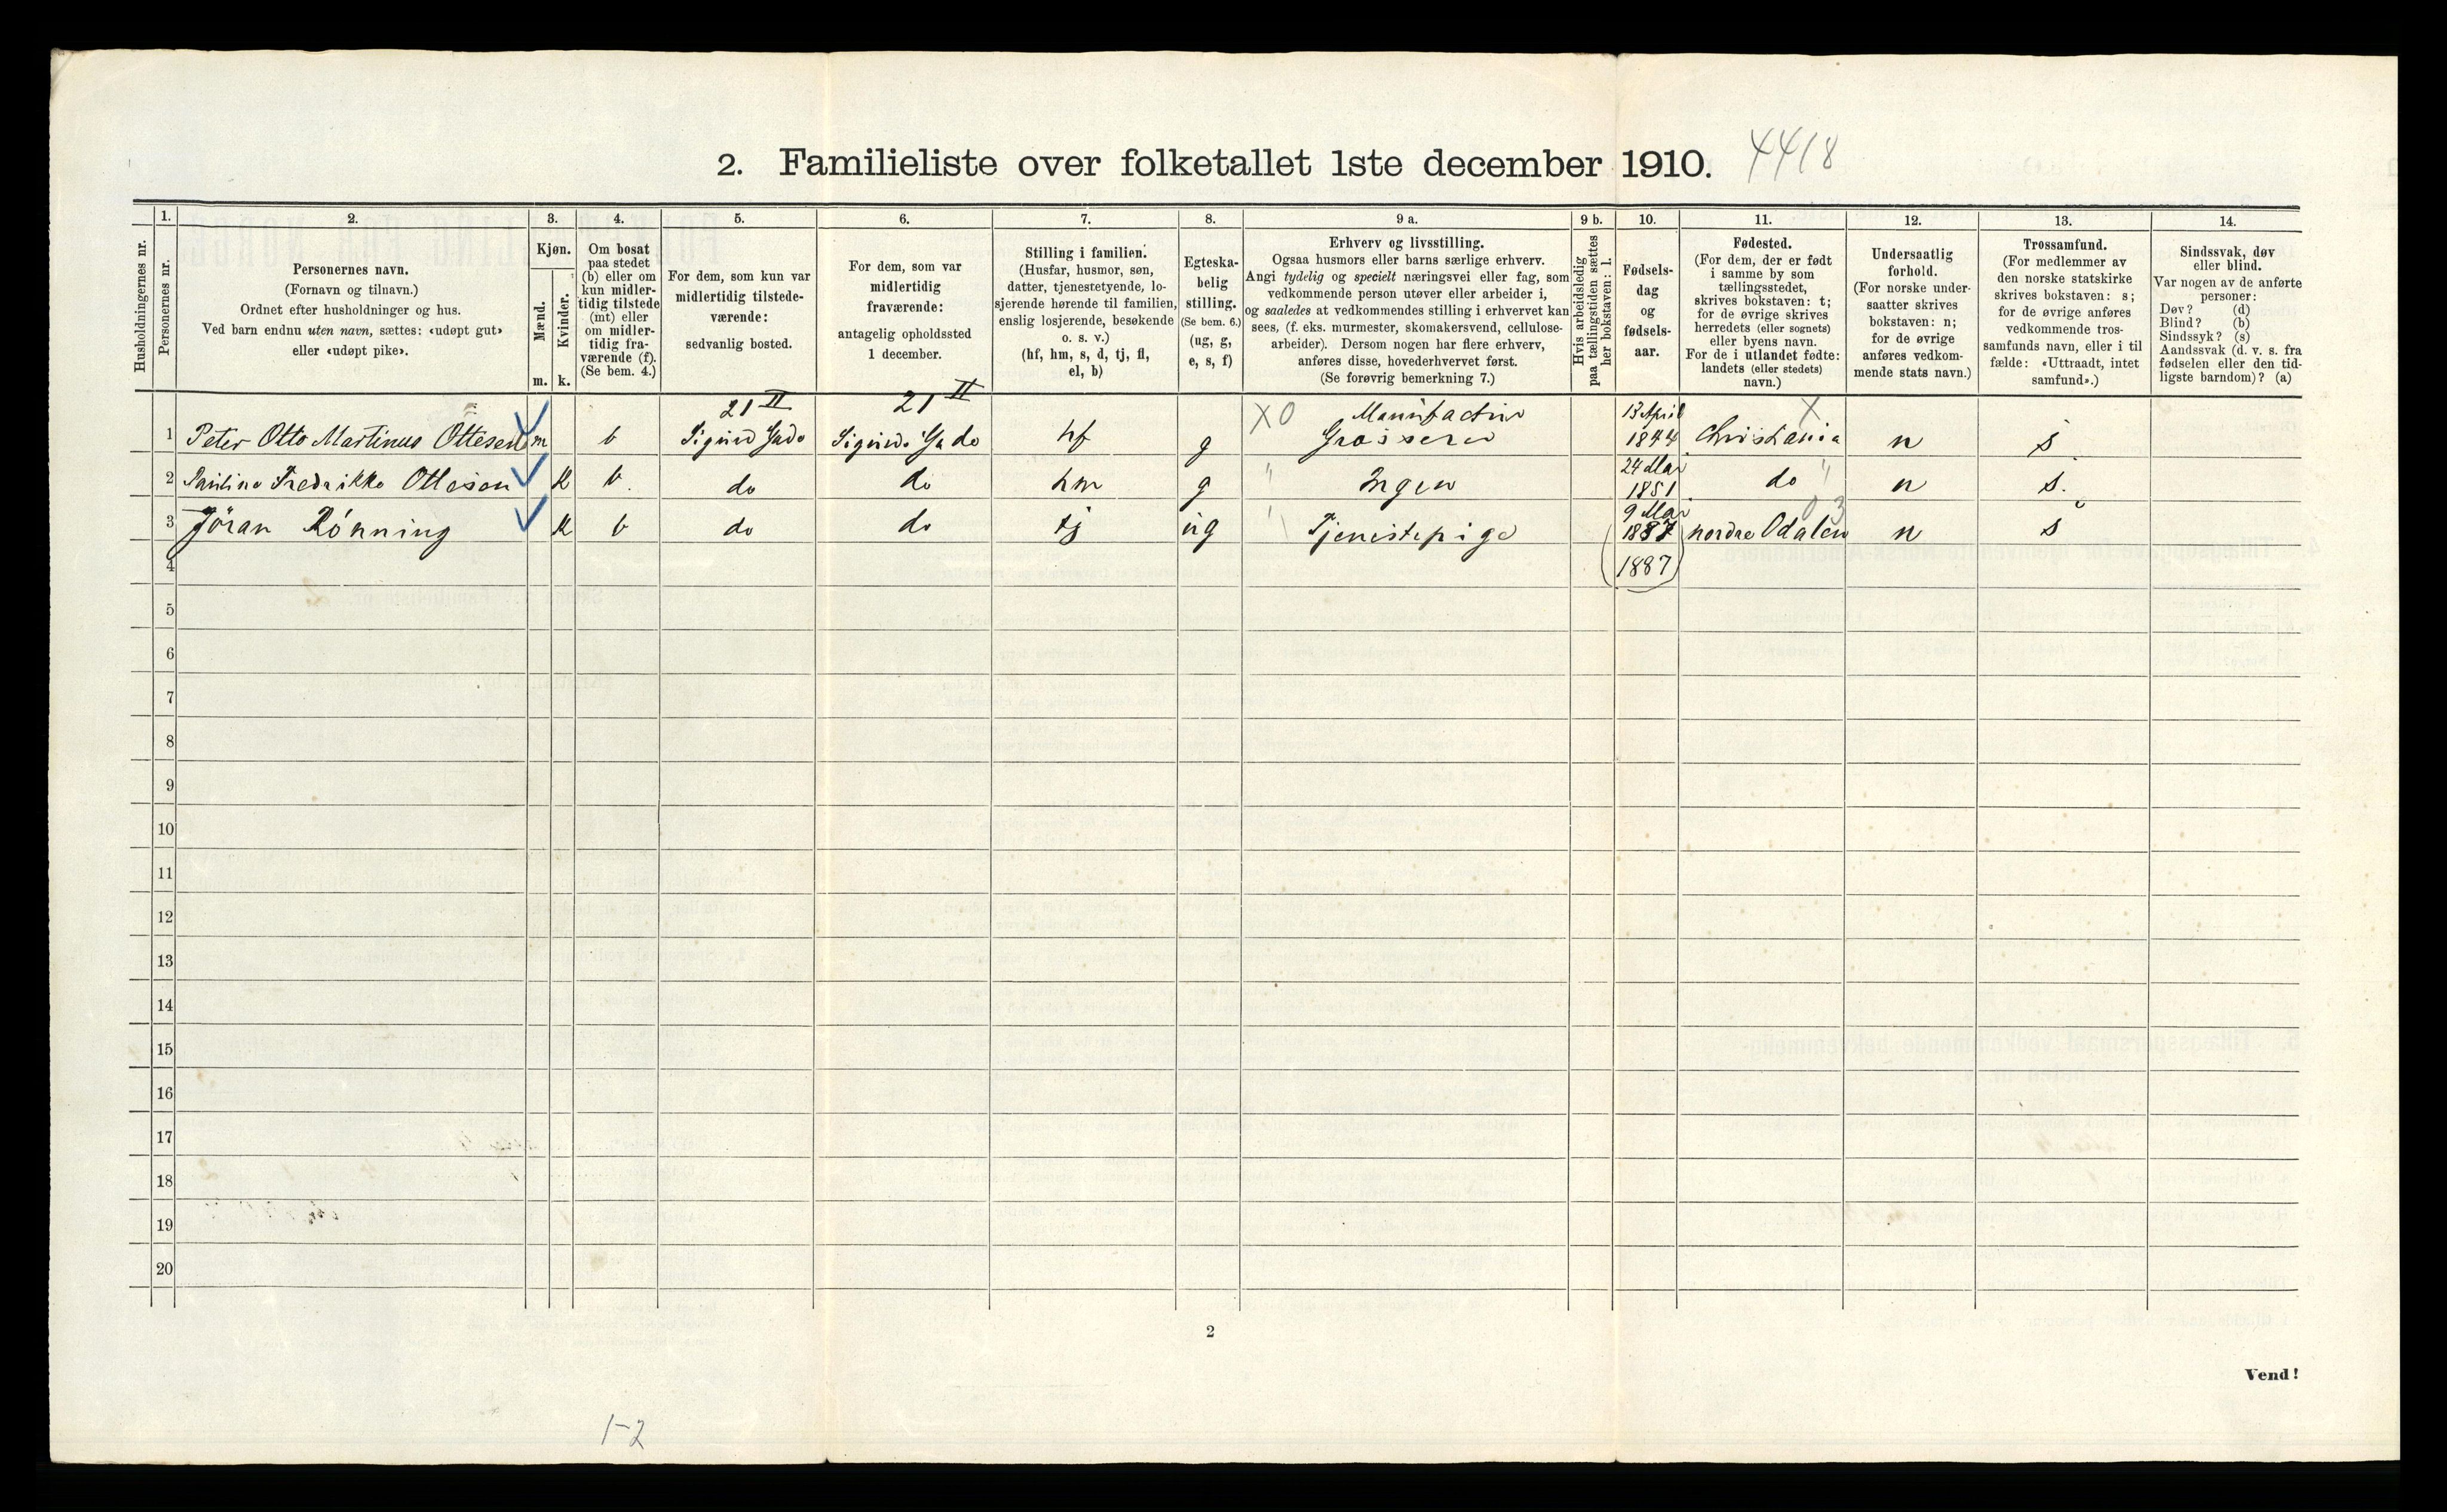 2. Familieliste over folketallet 1ste december 1910. 4418
Husholdningernes nr.
1.
Personernes nr.
2.
Personernes navn.
(Fornavn og tilnavn.)
Ordnet efter husholdninger og hus.
Ved barn endnu uten navn, sættes: «udøpt gut»
eller «udøpt pike».
3.
Kjøn.
Mænd.
Kvinder.
m. k.
4.
Om bosat
paa stedet
(b) eller om
kun midler-
tidig tilstede
(mt) eller
om midler-
tidig fra-
værende (f).
(Se bem. 4.)
5.
For dem, som kun var
midlertidig tilstede-
værende:
sedvanlig bosted.
6.
For dem, som var
midlertidig
fraværende:
antagelig opholdssted
1 december.
7.
Stilling i familien.
(Husfar, husmor, søn,
datter, tjenestetyende, lo-
sjerende hørende til familien,
enslig losjerende, besøkende
o. s. v.)
(hf, hm, s, d, tj, fl,
el, b)
8.
Egteska-
belig
stilling.
(Se bem. 6.)
(ug, g,
e, s, f)
9 a.
Erhverv og livsstilling.
Ogsaa husmors eller barns særlige erhverv.
Angi tydelig og specielt næringsvei eller fag, som
vedkommende person utøver eller arbeider i,
og saaledes at vedkommendes stilling i erhvervet kan
sees, (f. eks. murmester, skomakersvend, cellulose-
arbeider). Dersom nogen har flere erhverv,
anføres disse, hovederhvervet først.
(Se forøvrig bemerkning 7.)
9 b.
Hvis arbeidsledig
paa tællingstiden sættes
her bokstaven: l.
10.
Fødsels-
dag
og
fødsels-
aar.
11.
Fødested.
(For dem, der er født
i samme by som
tællingsstedet,
skrives bokstaven: t;
for de øvrige skrives
herredets (eller sognets)
eller byens navn.
For de i utlandet fødte:
landets (eller stedets)
navn.)
12.
Undersaatlig
forhold.
(For norske under-
saatter skrives
bokstaven: n;
for de øvrige
anføres vedkom-
mende stats navn.)
13.
Trossamfund.
(For medlemmer av
den norske statskirke
skrives bokstaven: s;
for de øvrige anføres
vedkommende tros-
samfunds navn, eller i til
fælde: «Uttraadt, intet
samfund».)
14.
Sindssvak, døv
eller blind.
Var nogen av de anførte
personer:
Døv? (d)
Blind? (b)
Sindssyk? (s)
Aandssvak (d. v. s. fra
fødselen eller den tid-
ligste barndom)? (a)
21 II 21 II X0 13 April X
1 Peter Otto Martinus Ottesen m b hf g Grosserer 1844 Christania n s
24 Mar
2 Fredrikke Ottesen K b. do do hm g " Ingen 1851 do " n s.
9 Mar 03
3 Jöran Rónning K b do do tj ug " Tjenestepige 1887 nordre Odalen n s
4 (1887)
5
6
7
8
9
10
11
12
13
14
15
16
17
18
19
20
2
Vend!
1-2